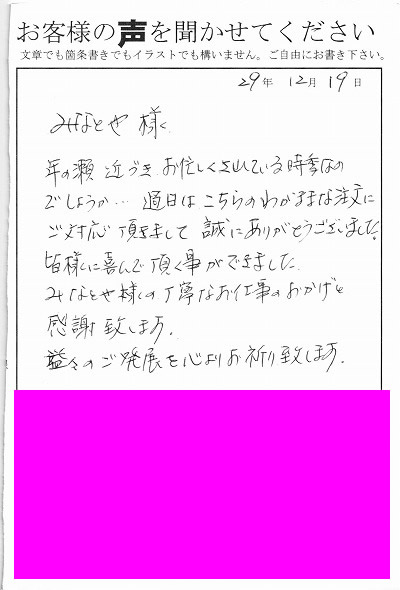 お客様の声を聞かせてください
文章でも箇条書きでもイラストでも構いません。ご自由にお書き下さい。
29年 12月 19日
みなとや 様
年の瀬 近づき お忙しくされている時季なの
でしょうか… 過日は こちらのわがままな注文に
ご対応 頂きまして 誠にありがとうございました。
皆様に喜んで頂く事ができました。
みなとや様の丁寧なお仕事のおかげと
感謝致します。
益々のご発展を心よりお祈り致します。